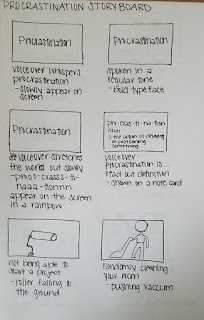 PROCRASTINATION STORYBOARD
Procrastination
Procrastination
voiceover whispers
procrastination
-slowly appear on
screen
spoken in a
regular tone
-bold typeface
Procrastination
pro·cras·ti·na·tion
noun
: the action of delaying
or postponing
something
voiceover stretches
the word out slowly
appear on the screen
in a rainbow
voiceover:
procrastination is...
read out definition
-shown on a note card
not being able to
start a project
-roller falling to
the ground
randomly cleaning
your room
-pushing vaccum